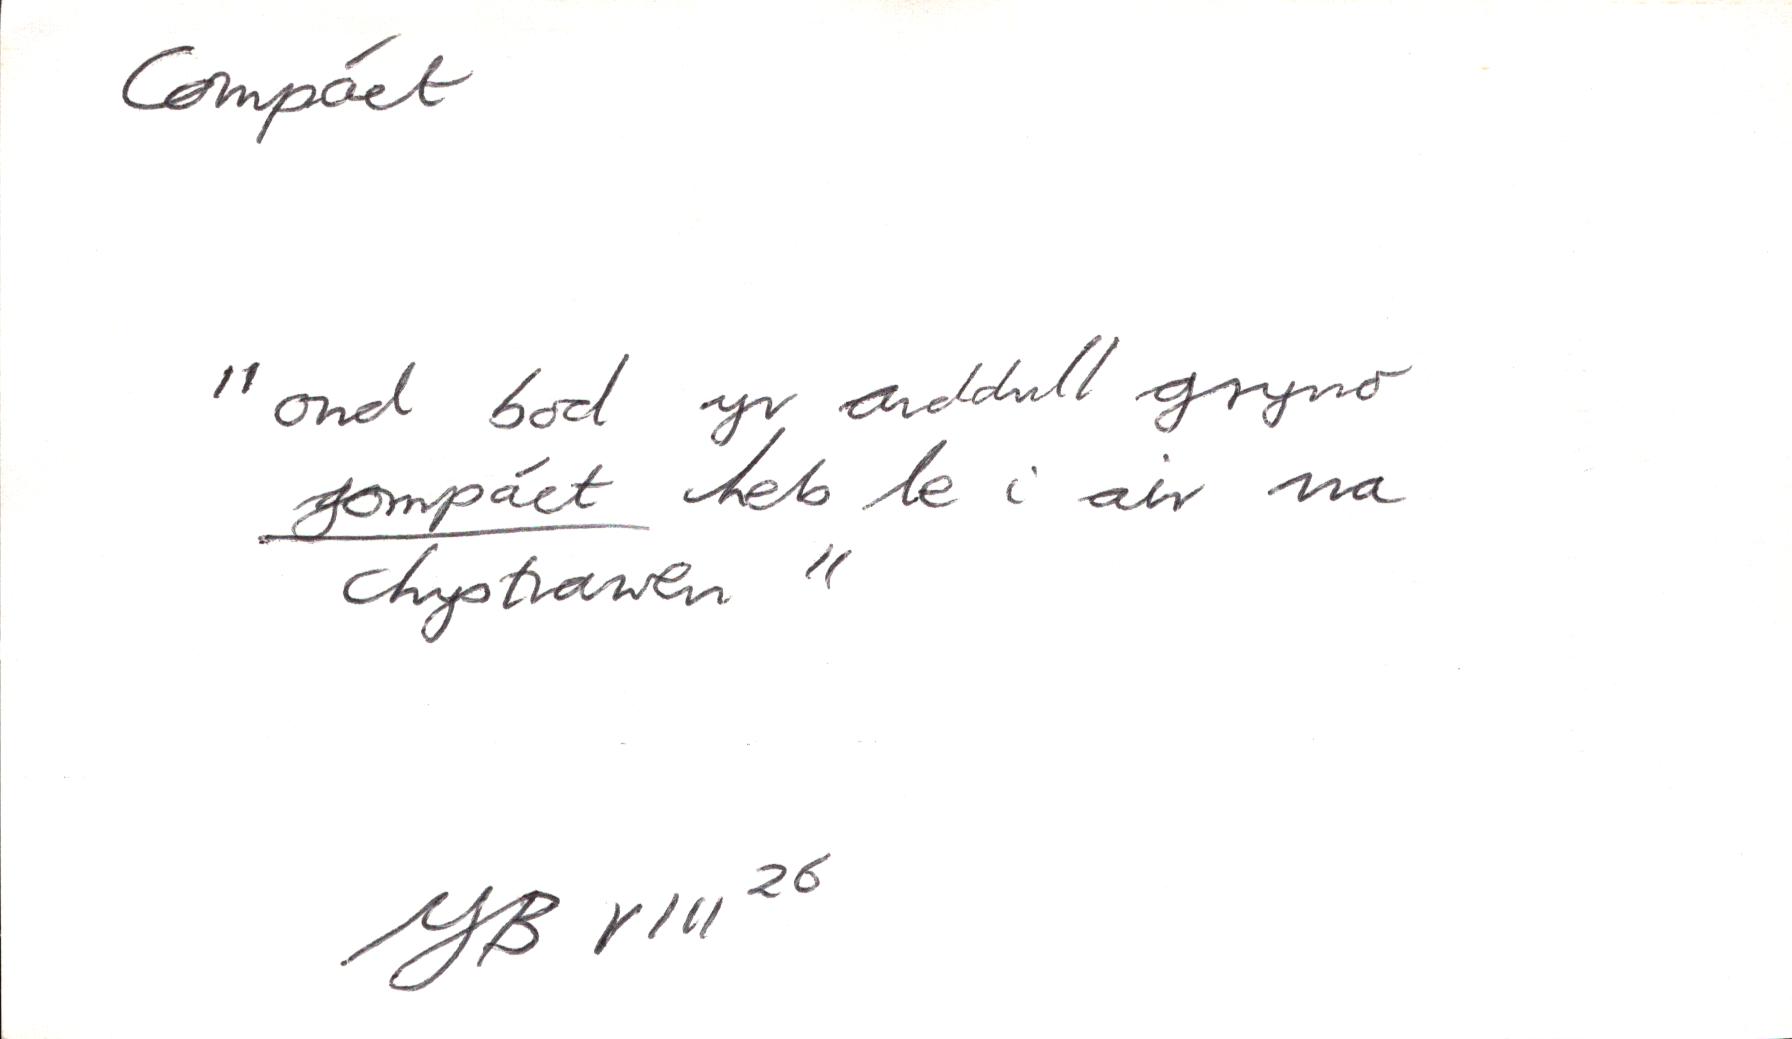 Compáct
"ond bod yr arddull gryno
gompáct heb le i air na
chystrawen"
YB VIII 26